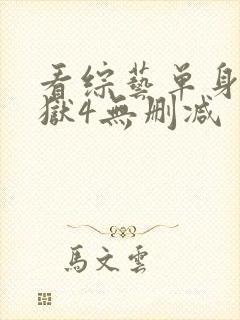 看综藝单身
獄4無删减
馬文雲